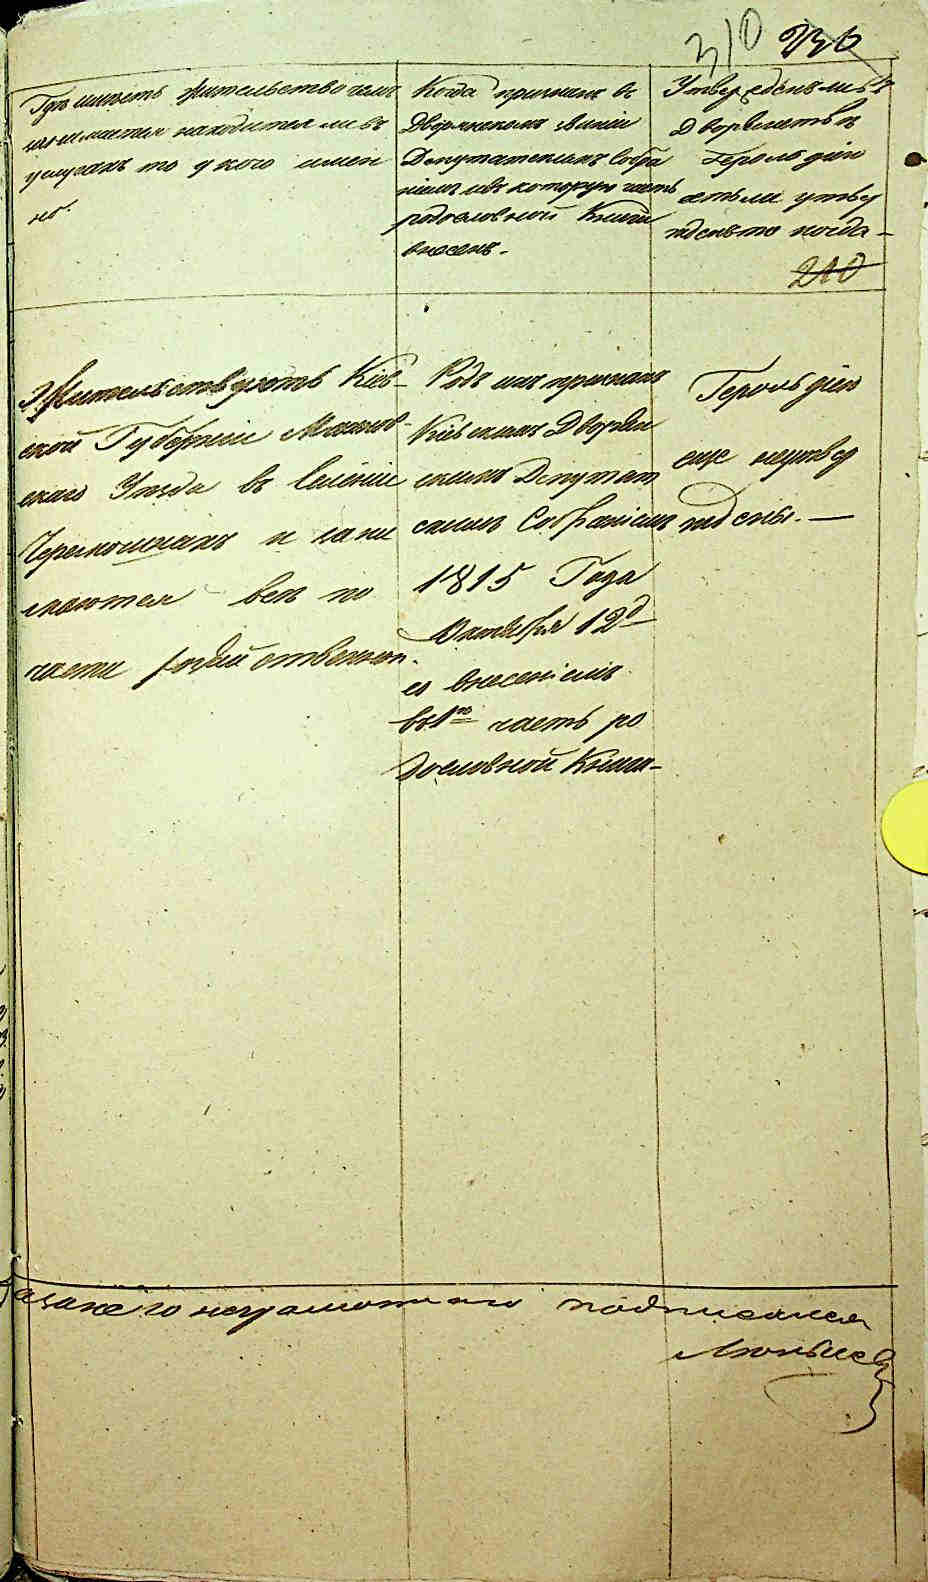 310 236
Где имеетъ жительство чемъ
занимается находится ли въ
услугахъ то у кого имен
но.
Когда признанъ въ
Дворянскомъ званіи
Депутатскимъ Собра
ніемъ и въ которую часть
родословной Книги
внесенъ.
Утвержденъ ли въ
Дворянствѣ
Герольдіею
естьли утвер
жденъ то когда
210
Жительствуютъ Кіев-
ской Губерніи
скаго Уезда въ Селеніи
и зани
маются все по
части
Родъ ихъ признанъ
Кіевскимъ Дворян
скимъ Депутат
скимъ Собраніемъ
1815 Года
Октября 12д
со внесеніемъ
въ 1ю часть ро
дословной Книги-
Герольдіею
еще неутвер
ждены. —
за него неграмотнаго подписался